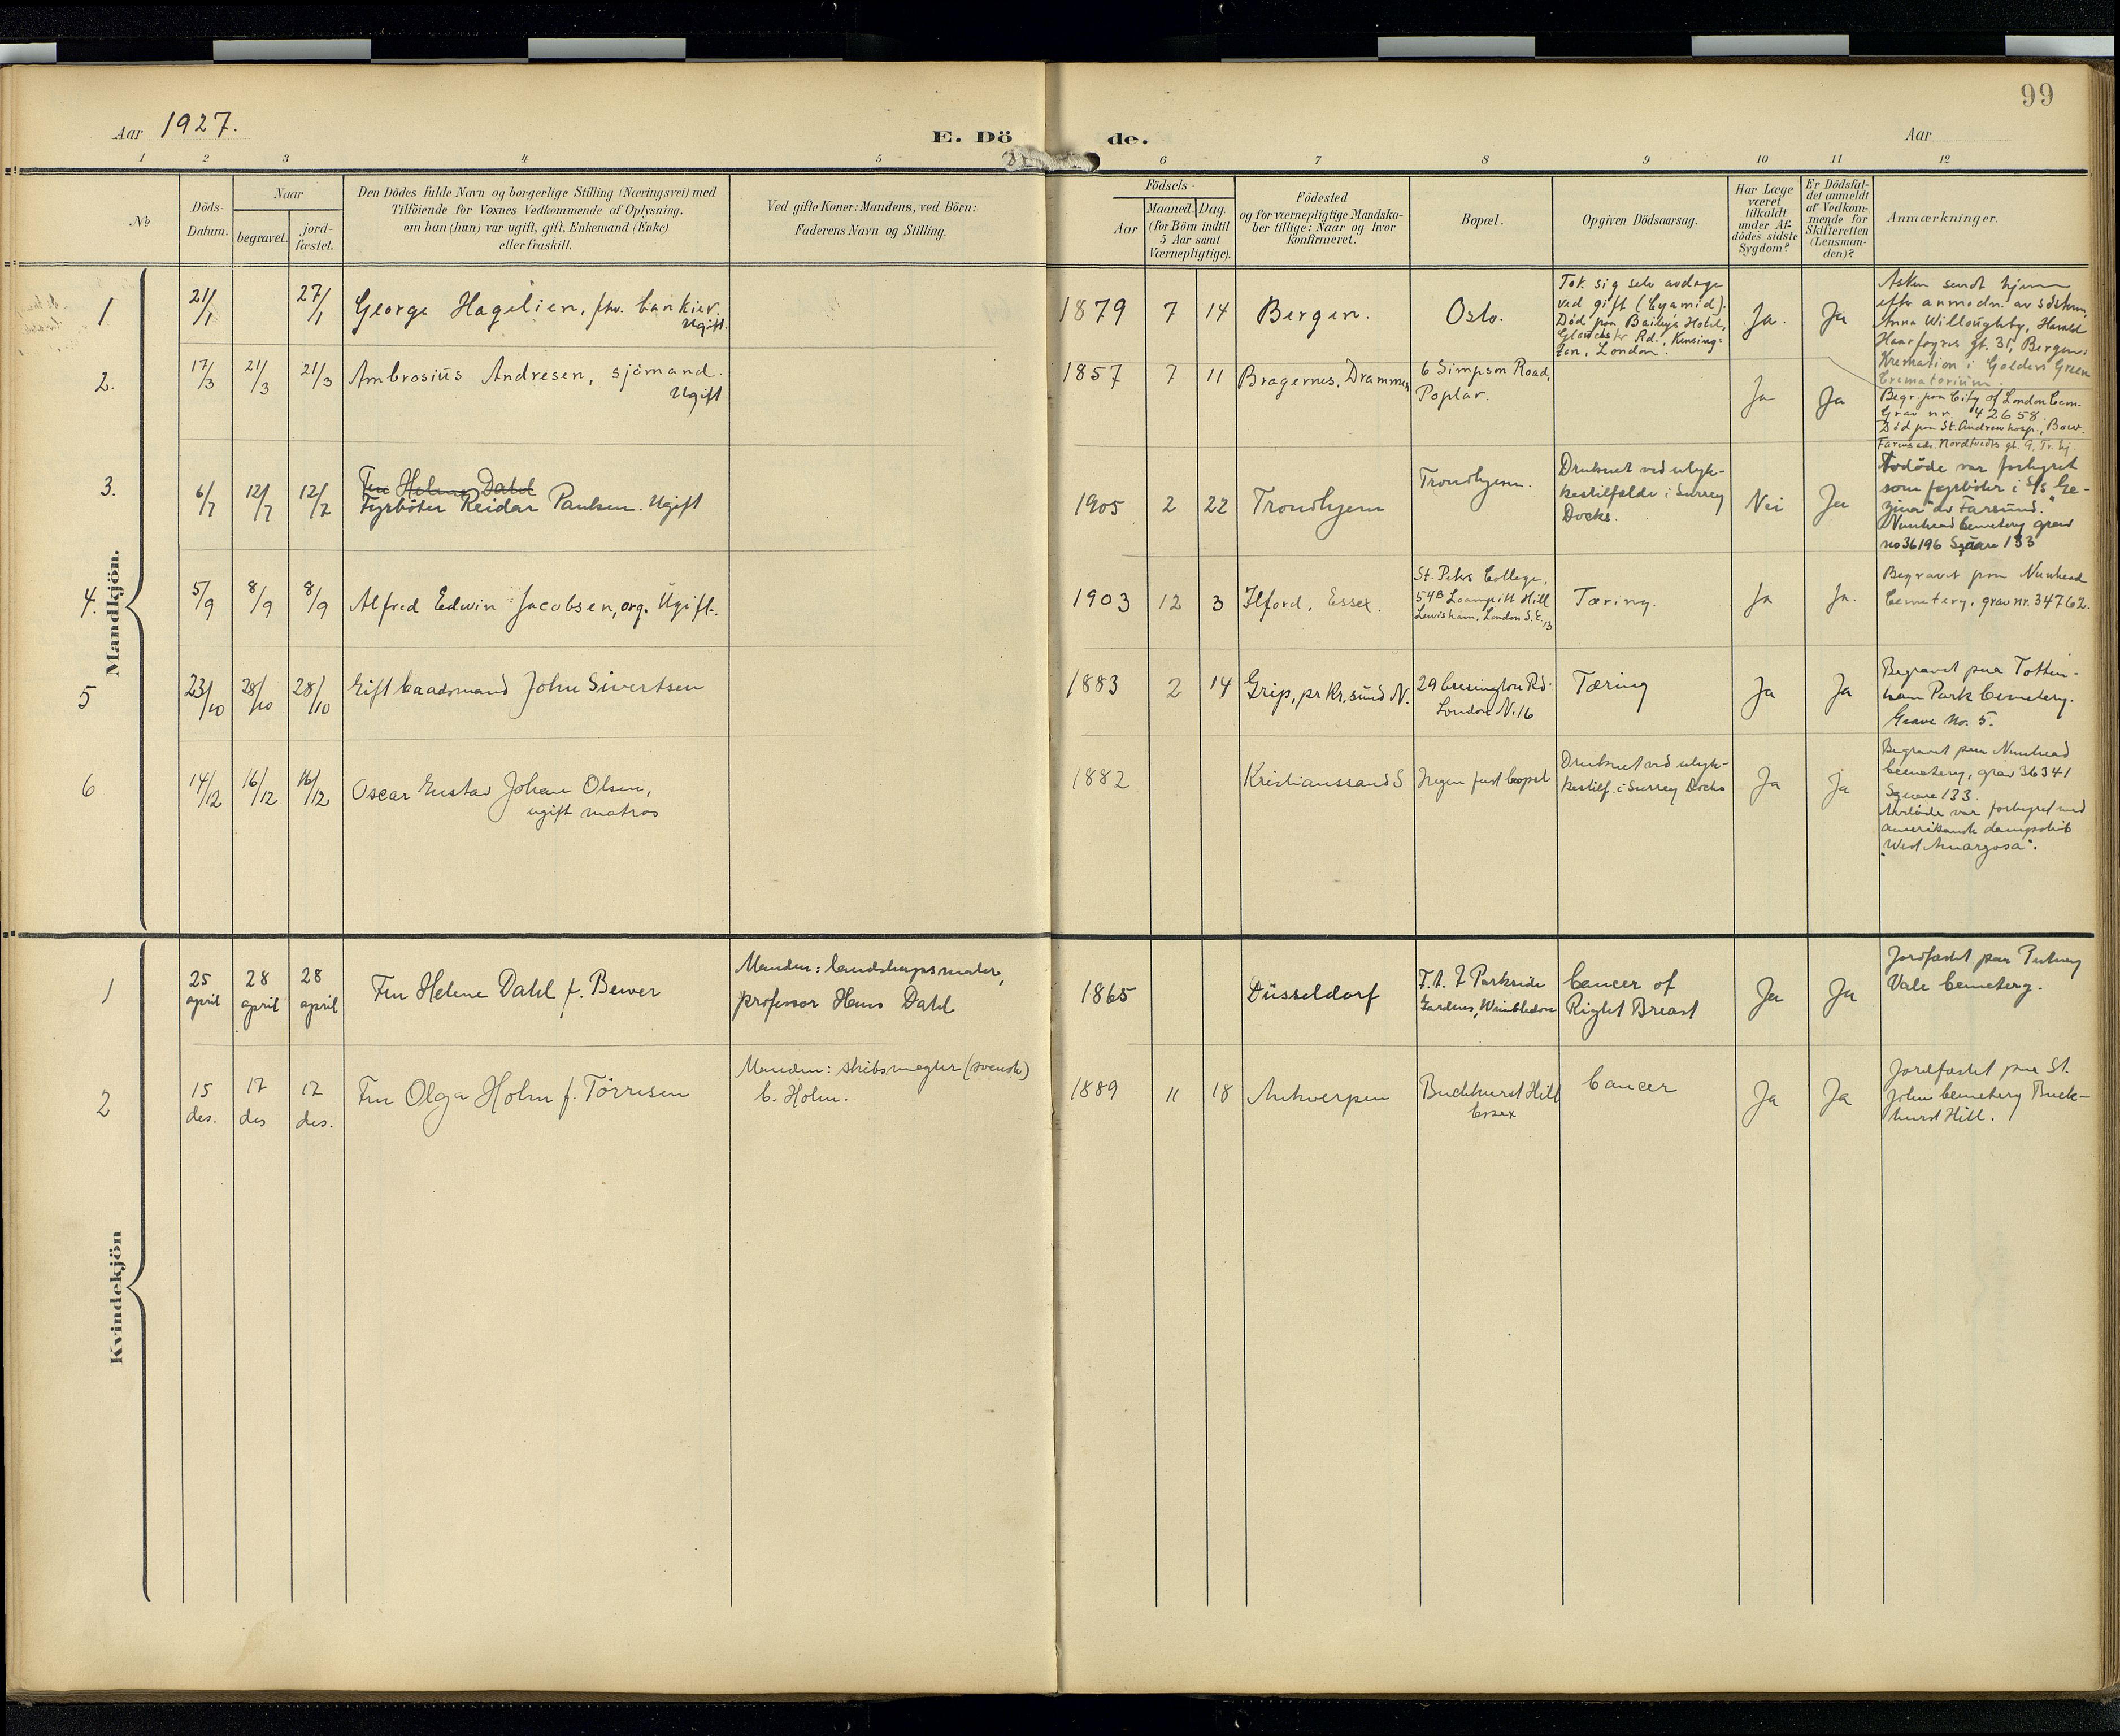 99
Aar 1927.
E. Dö de.
Aar
1 2 3 4 5 6 7 8 9 10 11 12
No
Döds-
Datum.
Naar
begravet.
jord-
fæstet.
Den Dödes fulde Navn og borgerlige Stilling (Næringsvei) med
Tilföiende for Voxnes Vedkommende af Oplysning,
om han (hun) var ugift, gift, Enkemand (Enke)
eller fraskilt.
Ved gifte Koner: Mandens, ved Börn:
Faderens Navn og Stilling.
Födsels-
Aar
Maaned. Dag.
(for Börn indtil
5 Aar samt
Værnepligtige).
Födested
og for værnepligtige Mandska-
ber tillige: Naar og hvor
konfirmeret.
Bopæl.
Opgiven Dödsaarsag.
Har Læge
været
tilkaldt
under Af-
dödes sidste
Sygdom?
Er Dödsfal-
det anmeldt
af Vedkom-
mende for
Skifteretten
(Lensman-
den)?
Anmærkninger.
Mandkjön.
1
21/1
27/1
George Hagelien, fhv. bankier.
Ugift.
1879
7
14
Bergen.
Oslo.
Tok sig selv avdage
ved gift (Cyamid).
Död paa Bailey's Hotel,
Gloucester Rd., Kensing-
ton, London.
Ja.
Ja
Asken sendt hjem
efter anmodn. av søsteren,
Anna Willoughby, Harald
Haarfagres gt. 31, Bergen.
Kremation i Golders Green
Crematorium.
2.
17/3
21/3
21/3
Ambrosius Andresen, sjömand.
Ugift
1857
7
11
Bragernes, Drammen
6 Simpson Road,
Poplar.
Ja
Ja
Begr. paa City of London Cem.
Grav nr. 42658.
Död paa St. Andrews hosp., Bow.
3.
6/7
12/7
12/7
Fru Helene Dahl
Fyrböter Reidar Paulsen. Ugift
1905
2
22
Trondhjem
Trondhjem.
Druknet ved ulyk-
kestilfælde i Surrey
Docks.
Nei
Ja
Farens adr. Nordtvedts gt. 9, Tr.hj.
Avdöde var forhyret
som fyrböter i S/S "Ge-
" av Farsund.
Nunhead Cemetery grav
no 36196 Square 133
4.
5/9
8/9
8/9
Alfred Edwin Jacobsen, org. Ugift.
1903
12
3
Ilford, Essex.
St. Peters College,
54B Loampitt Hill
Lewisham, London S.E. 13
Tæring.
Ja
Ja.
Begravet paa Nunhead
Cemetery, grav nr. 34762.
5
23/10
28/10
28/10
Gift baadsmand John Sivertsen
1883
2
14
Grip, pr Kr.sund N.
29 Cressington Rd.
London N. 16
Tæring
Ja
Ja
Begravet paa Totten-
ham Park Cemetery.
Grave No. 5.
6
14/12
16/12
16/12
Oscar Gustav Johan Olsen,
ugift matros
1882
Kristianssand S
Ingen fast bopæl
Druknet ved ulyk-
kestilf. i Surrey Docks
Ja
Ja
Begravet paa Nunhead
Cemetery, grav 36341
Square 133.
Avdöde var forhyret med
amerikansk dampskib
"West Amargosa".
Kvindekjön
1
25
april
28
april
28
april
Fru Helene Dahl f. Bewer
Manden: landskapsmaler,
professor Hans Dahl
1865
Düsseldorf
7 Parkside
Gardens, Wimbledon
Cancer of
Right Breast
Ja
Ja
Jordfæstet paa Putney
Vale Cemetery.
2
15
des.
17
des
17
des.
Fru Olga Holm f. Törresen
Manden: skibsmegler (svensk)
C. Holm.
1889
11
18
Antwerpen
Buckhurst Hill
Essex
Cancer
Ja
Ja
Jordfæstet paa St.
John Cemetery Buck-
hurst Hill.